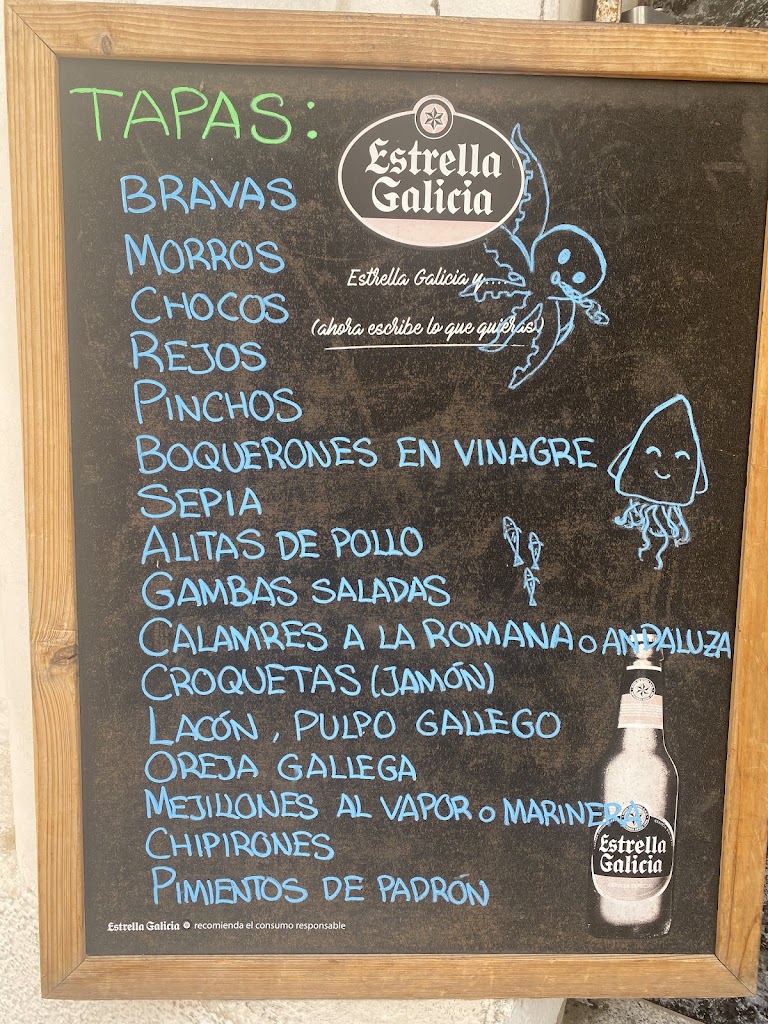 TAPAS:
Estrella
Galicia
BRAVAS
MORROS
Estrella Galicia y....
CHOCOS
(ahora escribe lo que quieras)
REJOS
PINCHOS
BOQUERONES EN VINAGRE
SEPIA
ALITAS DE POLLO
GAMBAS SALADAS
CALAMRES A LA ROMANA o ANDALUZA
CROQUETAS (JAMÓN)
LACÓN, PULPO GALLEGO
OREJA GALLEGA
MEJILLONES AL VAPOR o MARINERA
CHIPIRONES
Estrella
Galicia
PIMIENTOS DE PADRÓN
Estrella Galicia recomienda el consumo responsable